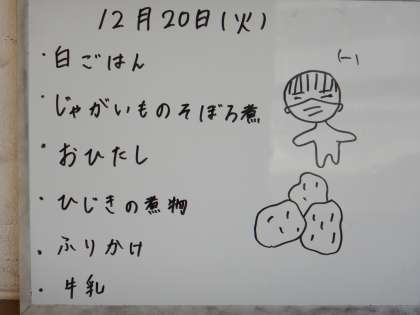 12月20日(火)
・白ごはん
・じゃがいものそぼろ煮
・おひたし
・ひじきの煮物
・ふりかけ
・牛乳